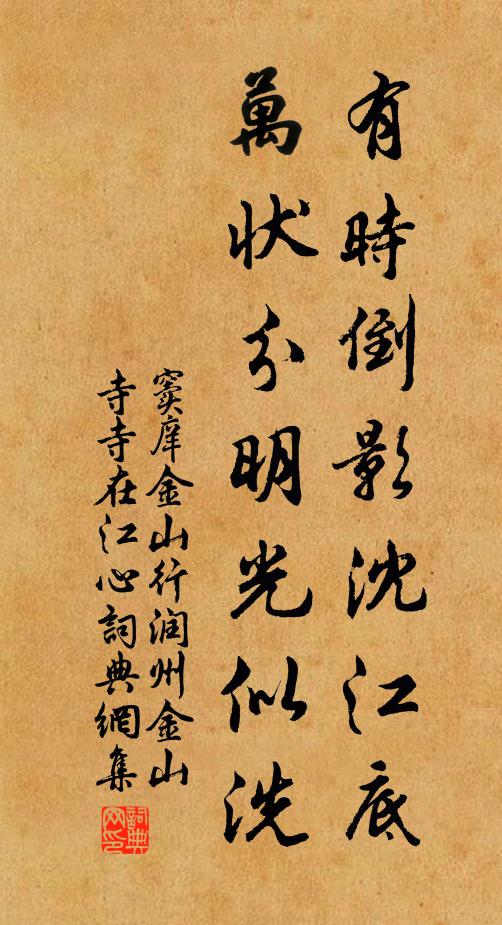 有時倒影沈江底
萬状分明光似洗
窦庠金山行润州金山
寺寺在江心詞典網集
詞典
网印